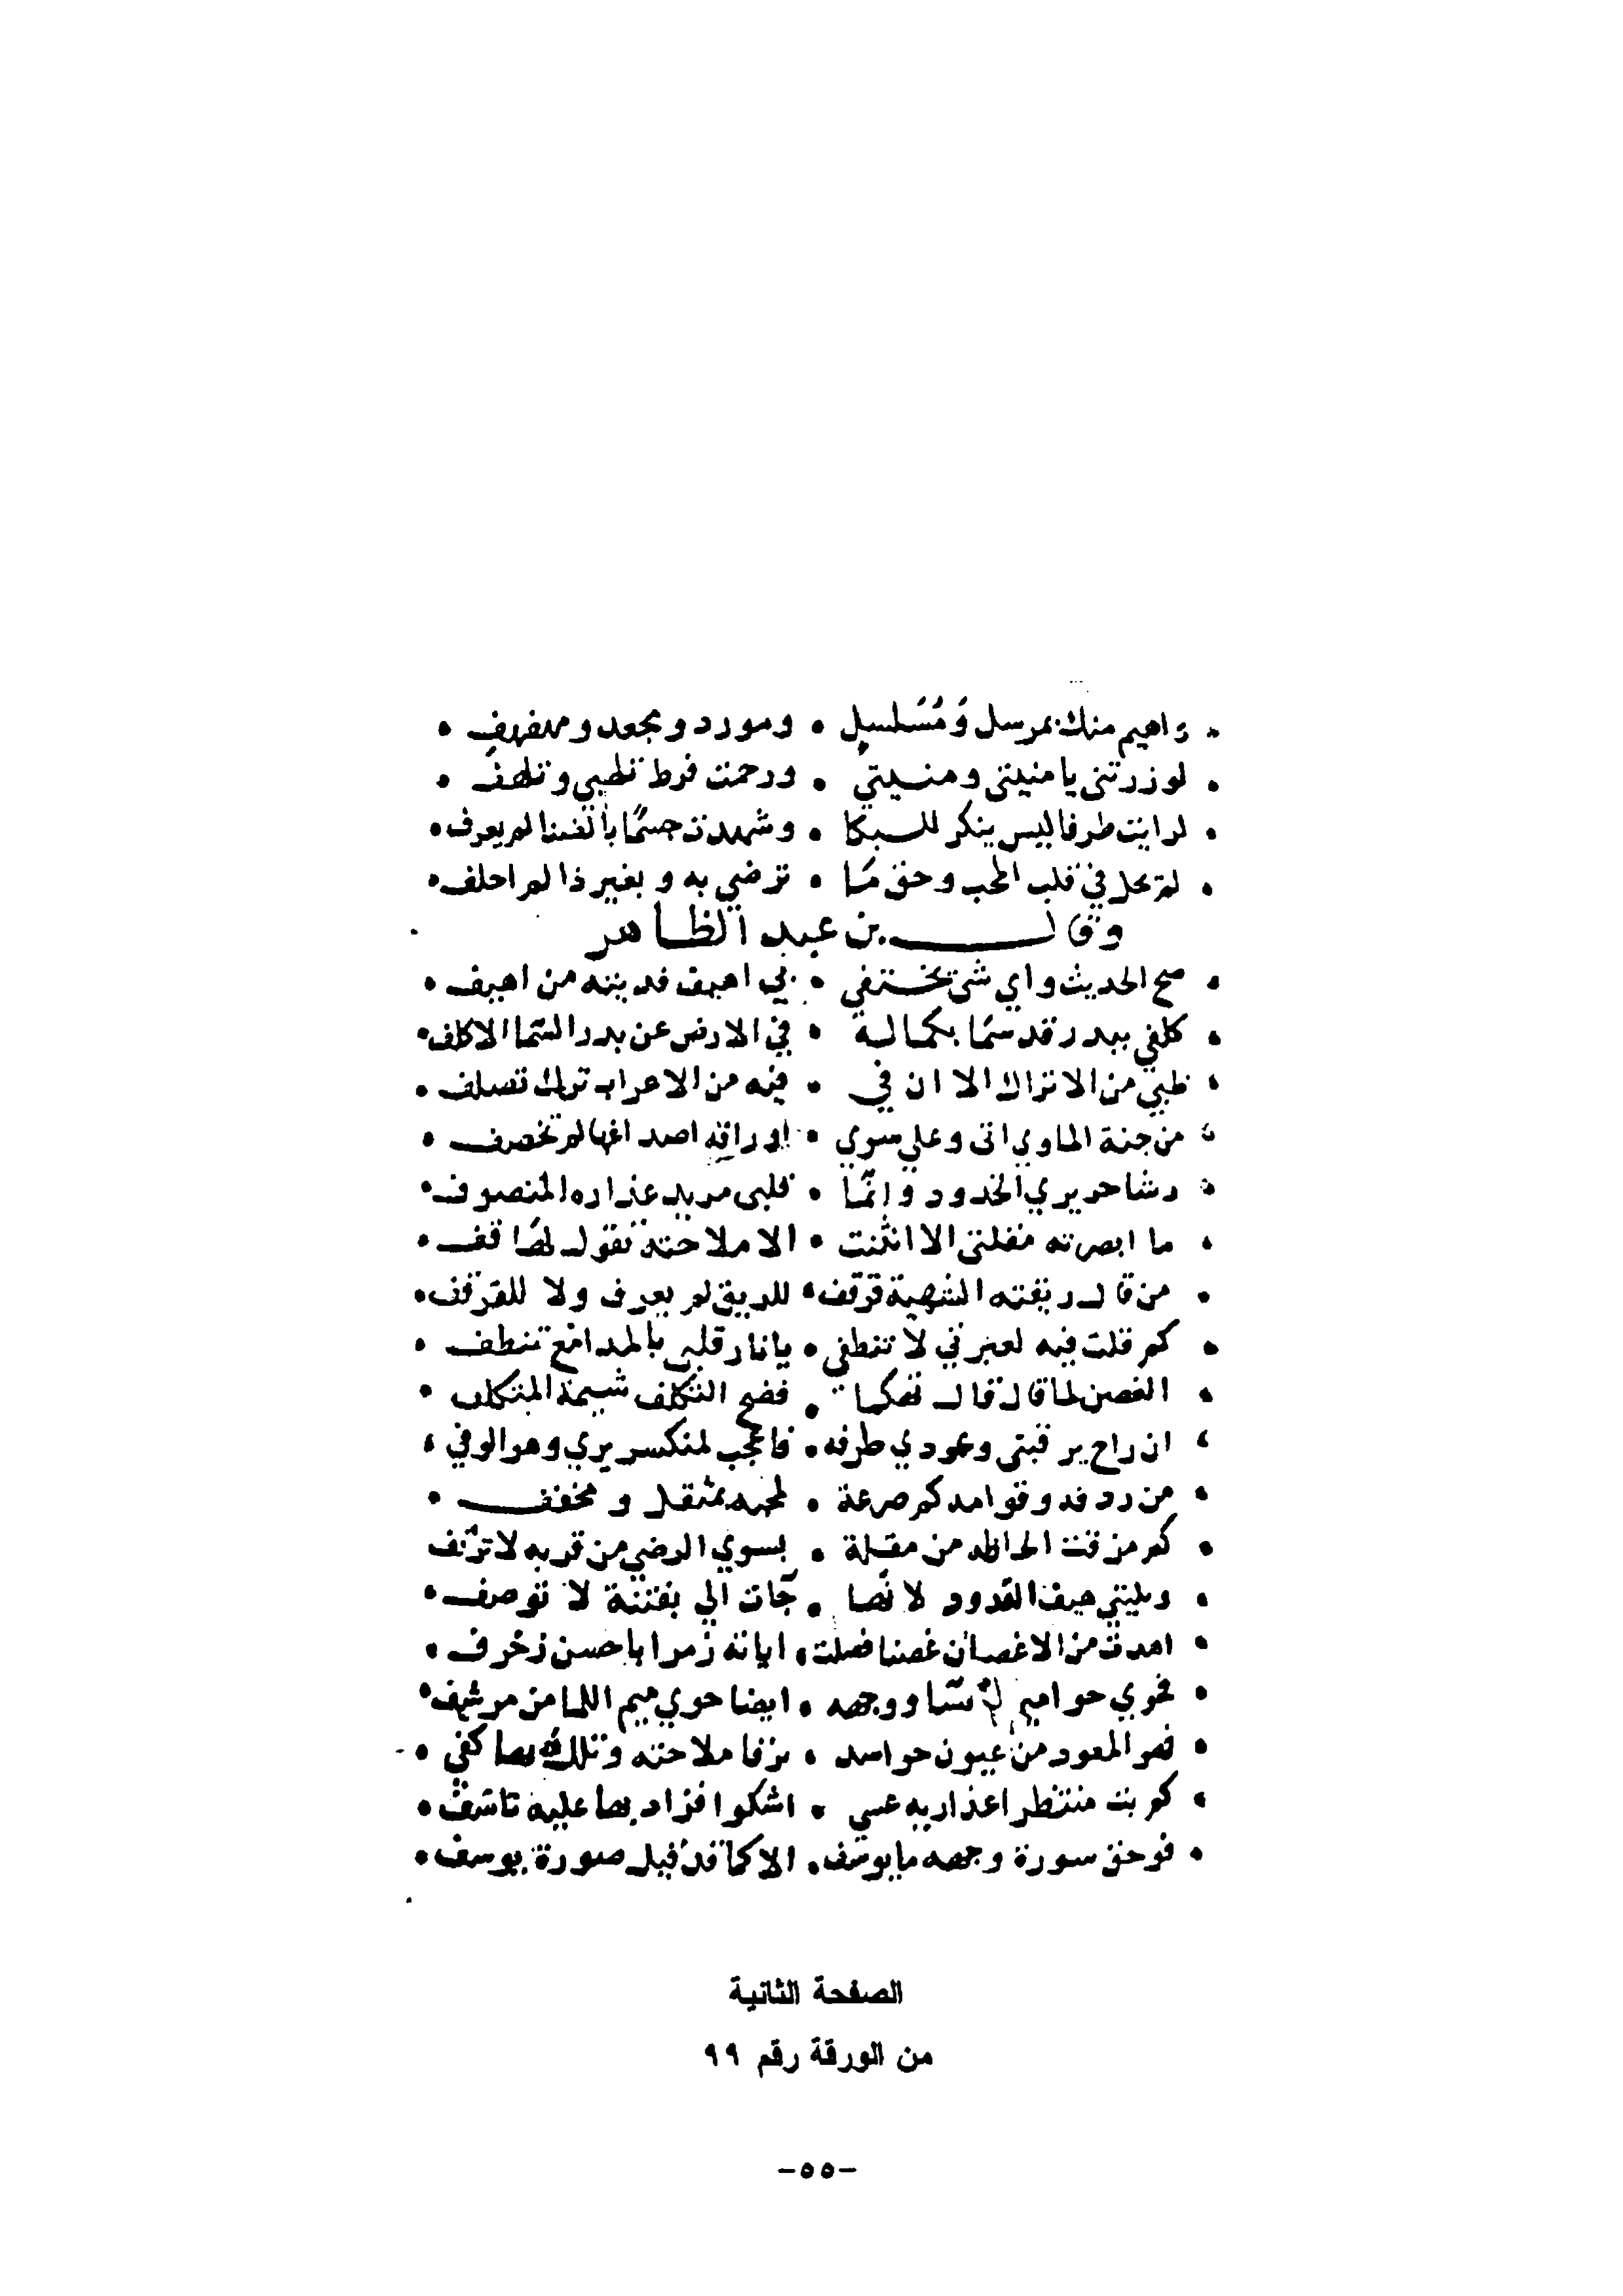 واهيم منك بمرسل وَمُسَلسل • ومورد ومجعد ومهفهف •
لو زرتني يا منيتي ومنيتي • ورحمت فرط تلهبي وتلهف •
لرايت طرفا ليس ينكر للبكا • وشهدت جسمًا بالضنا لم يعرف •
لم تحل في قلب المحب وحق مَا • ترضي به و بغير ذا لم احلف •
وقال بن عبد الظاهر
صح الحديث واي شي تختفي • بي اهيف فديته من اهيف •
كلفي ببدر قد سمَا بكماله • في الارض عن بدر السَما الاكلف •
ظبي من الاتراك الا ان في • فيه من الاعراب ترك تصلف •
من جنة الماوي اتى وعلي سوي • اوراقه اصداغها لم تخصف •
رشا حريري الخدود وانمَّا • قلبي مريد عذاره المتصوف •
ما ابصرته مقلتي الا انثنت • الا ملاحته تقول لها قف •
من قال ريقته الشهية قرقف • للريق لم يعرف ولا للقرقف •
كم قلت فيه لعبرتي لا تنطفي • يا نار قلبي بالمدامع تنطف •
الغصن لما قال قال تهكما • فضح التكلف شيمة المتكلف •
ان راح يرقبتي وعودي طرفه • فاعجب لمنكسر يري وهو الوفي •
من ردفه وقوامه كم صرعة • لمحبه بمثقل و مخفف •
كم مزقت الحاظه من مقلة • بسوي الرضي من قربه لا ترتف
ويليتي هيف القدود لانها • جآت الي بفتنة لا توصف •
اهدت من الاغصان غصنا فصلت • اياته زمرا باحسن زخرف •
فحوي حواميم ووجهه • ايضا حوي ميم اللما من مرشف •
فهو المعوذ من عيون حواسد • ملاحته وتلك بها كفي •
كم بت منتظرا عذاريه عسي • اشكوا فزاد بها عليه تاسف •
فوحق سورة وجهه ما يوسف • الا كما قد قيل صورة يوسف •
الصفحة الثانية
من الورقة رقم ٩٩
-٥٥-